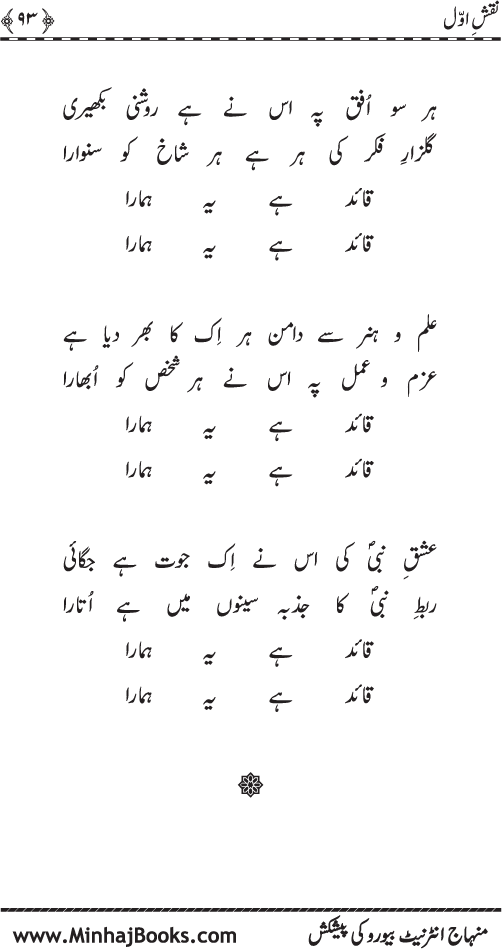 نقشِ اوّل ﴿۹۳﴾
ہر سو اُفق پہ اس نے ہے روشنی بکھیری
گلزارِ فکر کی ہر ہے ہر شاخ کو سنوارا
قائد ہے یہ ہمارا
قائد ہے یہ ہمارا
علم و ہنر سے دامن ہر اِک کا بھر دیا ہے
عزم و عمل پہ اس نے ہر شخص کو اُبھارا
قائد ہے یہ ہمارا
قائد ہے یہ ہمارا
عشقِ نبیؐ کی اس نے اِک جوت ہے جگائی
ربطِ نبیؐ کا جذبہ سینوں میں ہے اُتارا
قائد ہے یہ ہمارا
قائد ہے یہ ہمارا
منہاج انٹرنیٹ بیورو کی پیشکش www.MinhajBooks.com